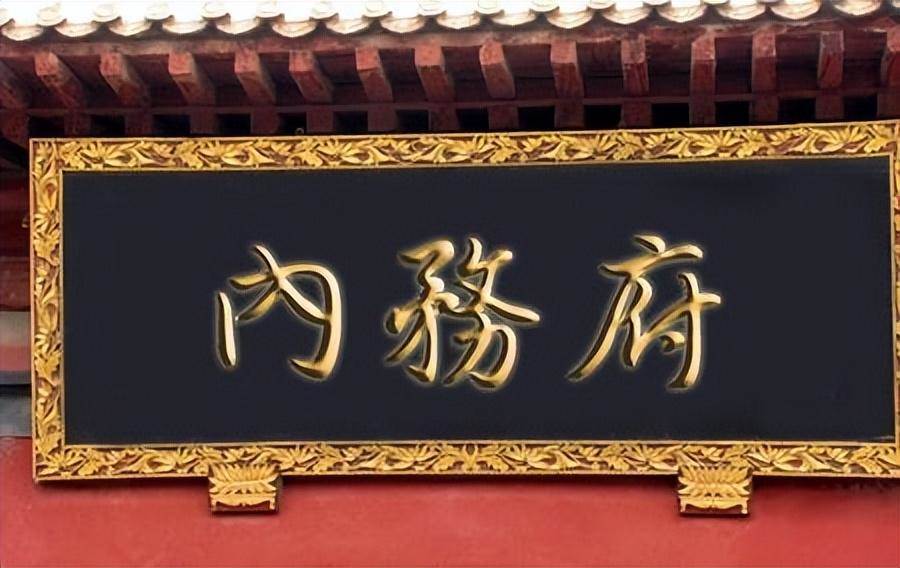 內務府